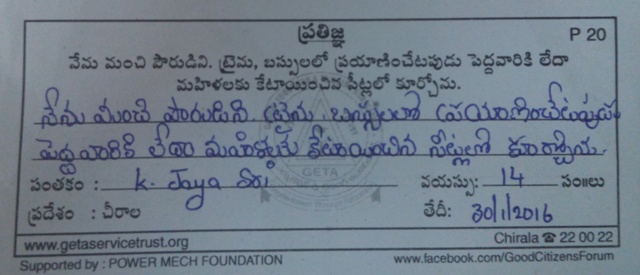 ప్రతిజ్ఞ
P 20
నేను మంచి పౌరుడిని. ట్రైను, బస్సులలో ప్రయాణించేటపుడు పెద్దవారికి లేదా
మహిళలకు కేటాయించిన సీట్లలో కూర్చోను.
నేను మంచి పౌరుడిని ట్రైను బస్సులలో ప్రయాణించేటప్పుడు
పెద్దవారికి లేదా మహిళలకు కేటాయించిన సీట్లలో కూర్చోను.
GETA
సంతకం : K. Jaya వయస్సు: 14 సం॥లు
ప్రదేశం : చీరాల తేదీ: 30/1/2016
www.getaservicetrust.org Chirala ☎ 22 00 22
Supported by : POWER MECH FOUNDATION www.facebook.com/GoodCitizensForum